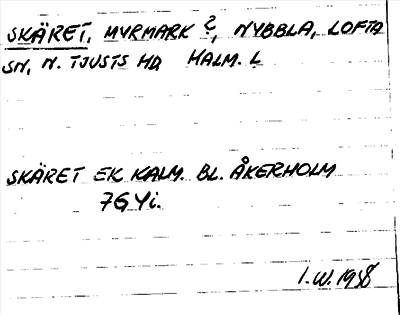 SKÄRET, MYRMARK ?, NYBBLA, LOFTA
SN, N. TJUSTS HD KALM. L
SKÄRET EK KALM. BL. ÅKERHOLM
7G4i.
I.W. 1958